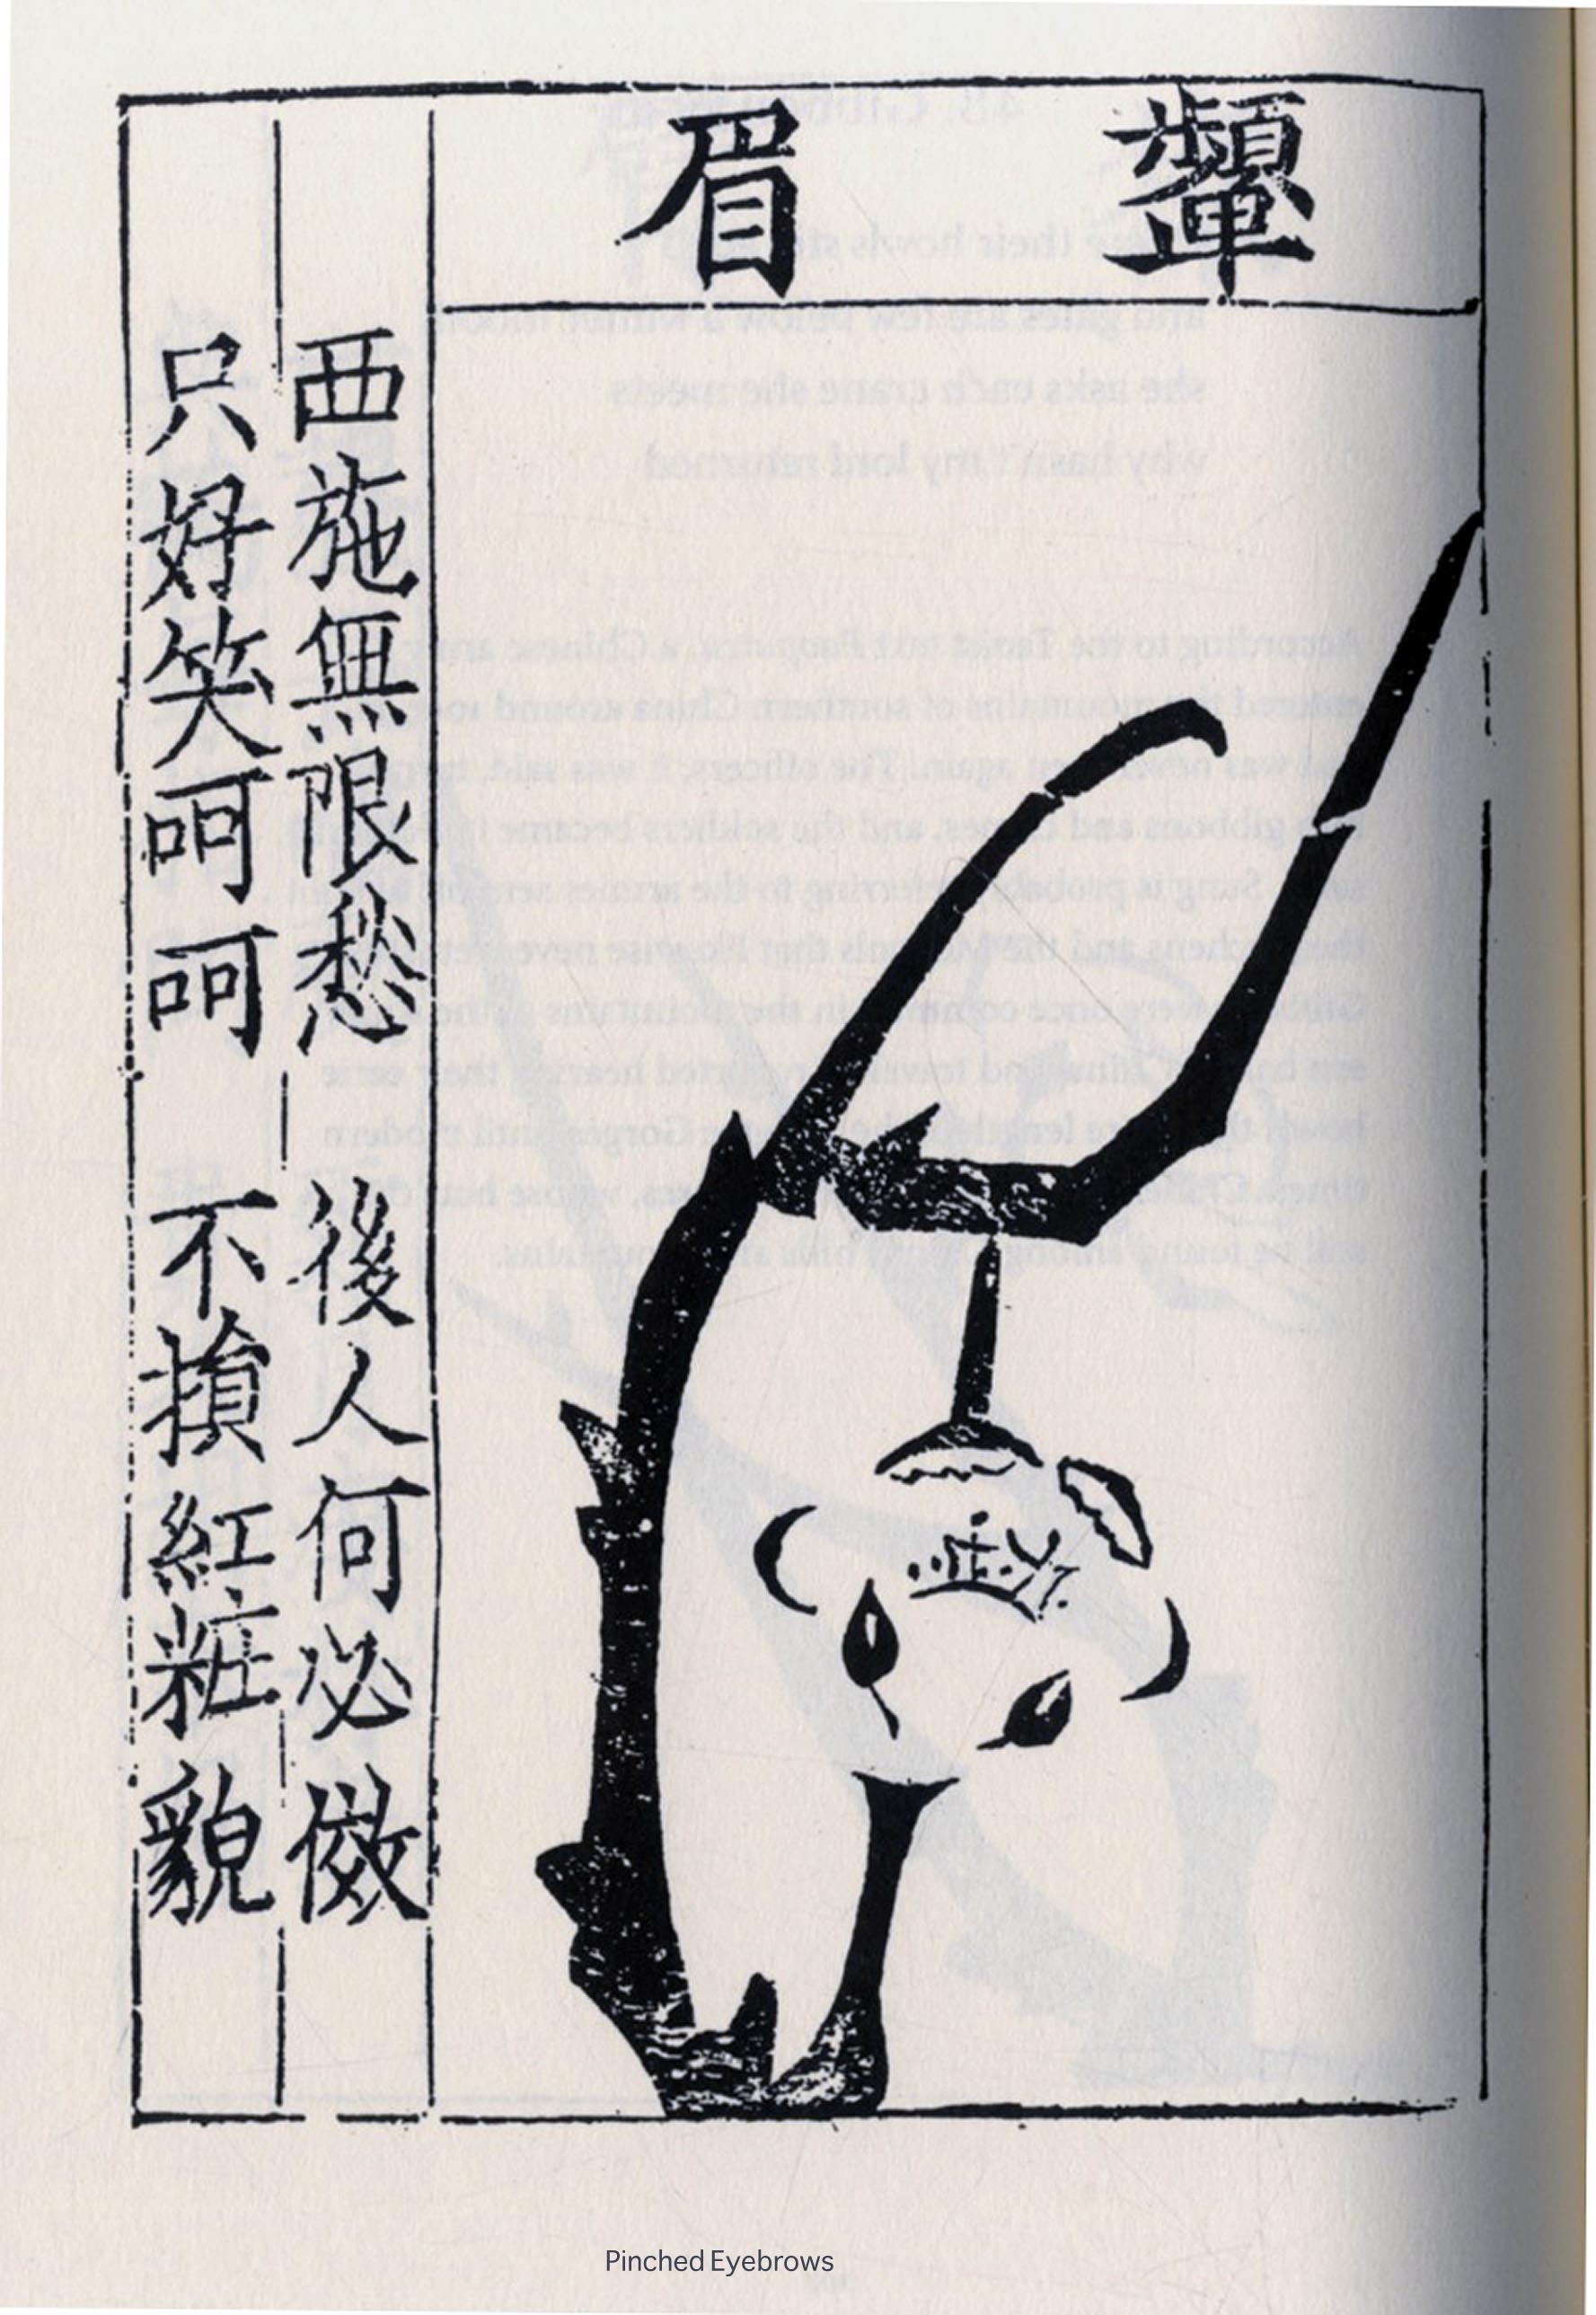 顰眉
西施無限愁 後人何必傚
只好笑呵呵 不損紅粧貌
Pinched Eyebrows